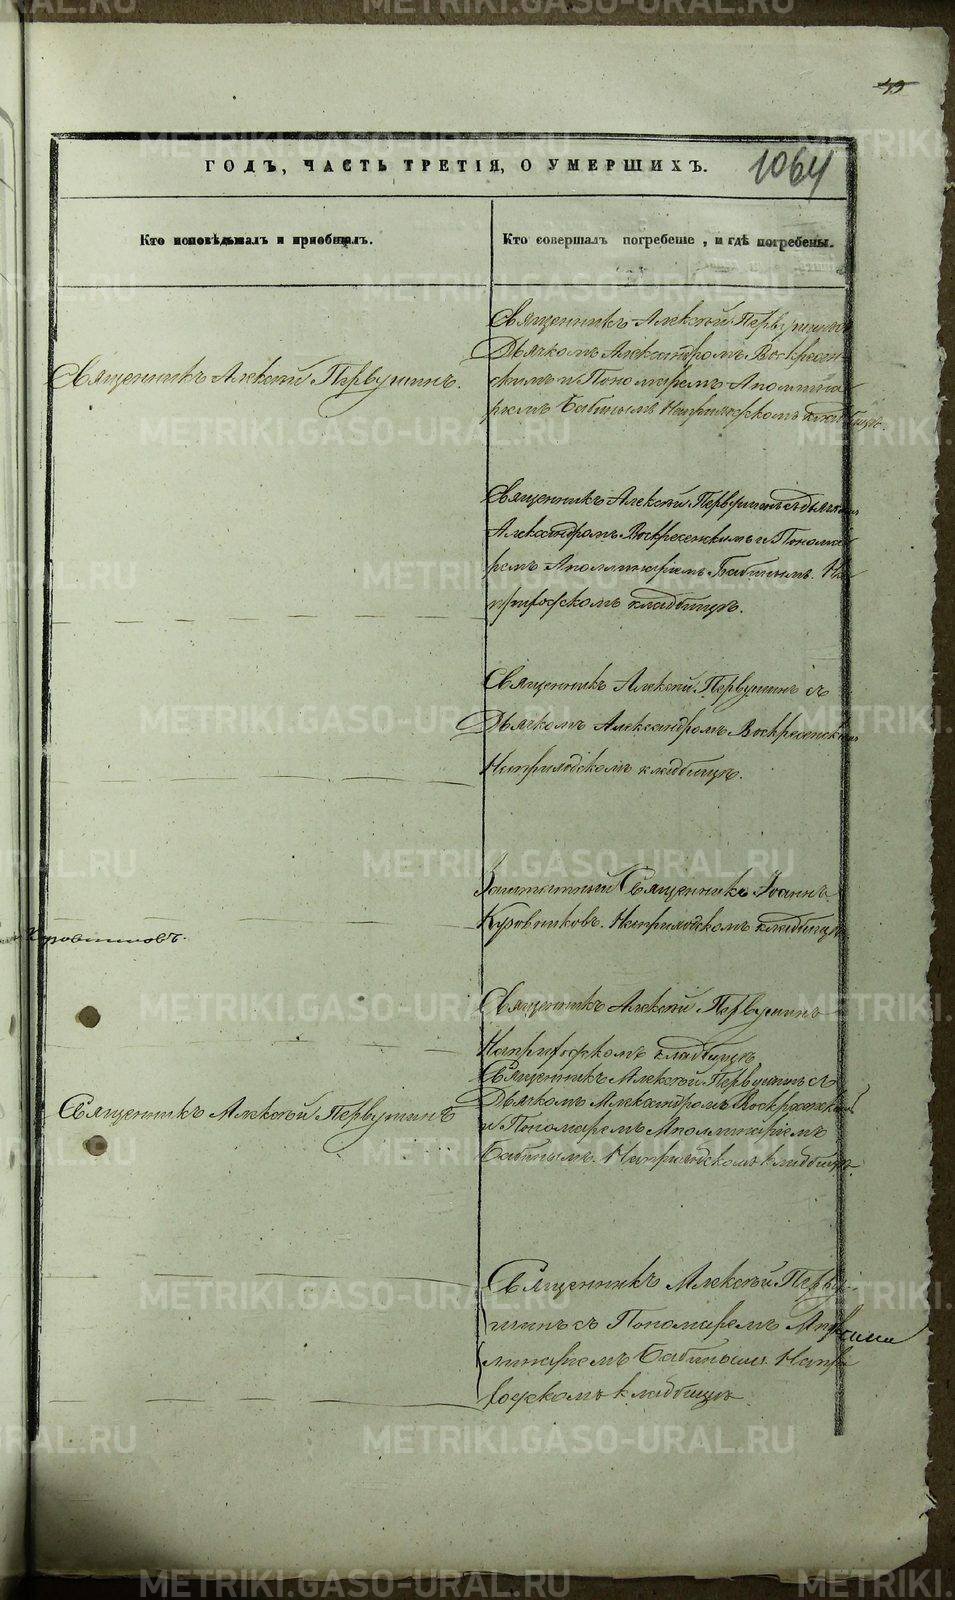 49
ГОДЪ, ЧАСТЬ ТРЕТІЯ, О УМЕРШИХЪ.
1064
Кто исповѣдывалъ и пріобщалъ.
Кто совершалъ погребеніе, и гдѣ погребены.
Священникъ Алексѣй Первушинъ.
Священникъ Алексѣй Первушинъ
Дьячкомъ Александромъ Воскресен-
скимъ и Пономаремъ Аполлина-
ріемъ Бабинымъ Наприходскомъ кладбищѣ.
Священникъ Алексѣй Первушинъ съ дьячкомъ
Александромъ Воскресенскимъ и Понома-
ремъ Аполлинаріемъ Бабинымъ. На
приходскомъ кладбищѣ.
Священникъ Алексѣй Первушинъ съ
Дьячкомъ Александромъ Воскресенскимъ
Наприходскомъ кладбищѣ.
Заштатный Священникъ Іоаннъ
Кузовниковъ. Наприходскомъ кладбищѣ
Кузовниковъ.
Священникъ Алексѣй Первушинъ
Наприходскомъ кладбищѣ
Священникъ Алексѣй Первушинъ
Священникъ Алексѣй Первушинъ съ
Дьячкомъ Александромъ Воскресенскимъ
и Пономаремъ Аполлинаріемъ
Бабинымъ. Наприходскомъ кладбищѣ.
Священникъ Алексѣй Перву-
шинъ съ Пономаремъ
линаріемъ Бабинымъ. Напри
ходскомъ кладбищѣ.
METRIKI.GASO-URAL.RU